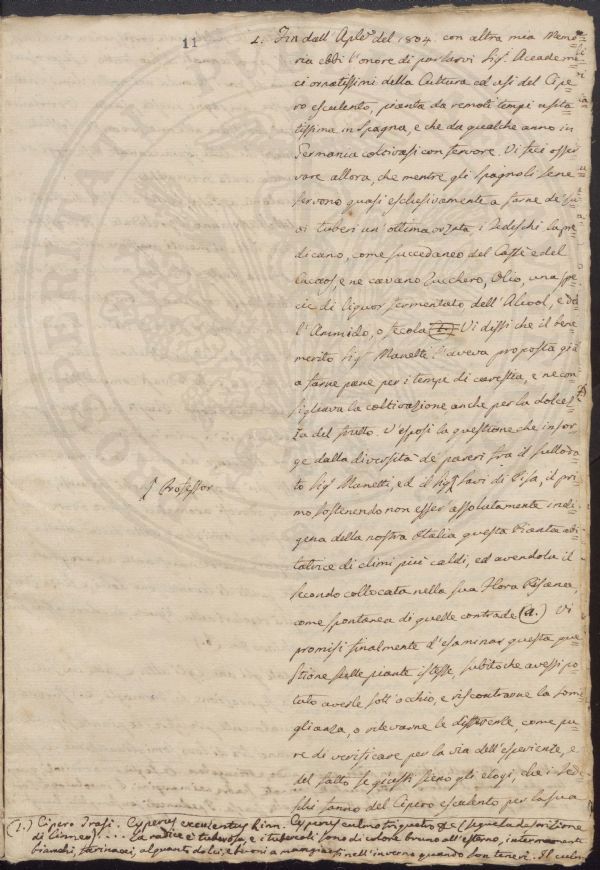 11
1. Fin dall' Aple del 1804. con altra mia Memo=
ria ebbi l'onore di parlarvi Sigi. Accademi=
ci ornatissimi della Cultura ed usi del Cipe=
ro esculento, pianta da remoti tempi usita=
tissima in Spagna, e che da qualche anno in
Germania coltivasi con fervore. Vi feci osser=
vare allora, che mentre gli Spagnoli se ne
servono quasi esclusivamente a farne de' su=
oi tuberi un' ottima orzata, i Tedeschi la pre=
dicano, come succedaneo del Caffè e del
Caccaos e ne cavano Zucchero, Olio, una spe=
cie di liquor fermentato dell' Alcool, e del=
l'Ammido, o fecola (1.) Vi dissi che il bene=
merito Sigr. Manetti l'aveva proposta già
a farne pane per i tempi di carestia, e ne con=
sigliava la coltivazione anche per la dolcez=
za del frutto. V'esposi la questione che insor=
ge dalla diversità de' pareri fra il sulloda=
to Sigr. Manetti, ed il Sigr. Savi di Pisa, il pri=
Professor
mo sostenendo non esser assolutamente indi=
gena della nostra Italia questa Pianta abi=
tatrice di climi più caldi, ed avendola il
secondo collocata nella sua Flora Pisana,
come spontanea di quelle contrade (a.) Vi
promisi finalmente d'esaminar questa que=
stione sulle piante istesse, subito che avessi po=
tuto averle sott' occhio, e riscontrarne la somi=
glianza, o rilevarne le differenze, come pu=
re di verificare per la via dell' esperienze, e
del fatto se giusti sieno gli elogi, che i Tede=
schi fanno del Cipero esculento per la sua
(1.) Cipero Trasi. Cyperus esculentus Linn. Cyperus culmo triquetro &c (segue la descrizione
di Linneo) . . . La radice è tuberosa, e i tuberoli sono di colore bruno all' esterno, internamente
bianchi, farinacei, alquanto dolci, e buoni a mangiarsi nell' inverno quando son teneri. Il culm